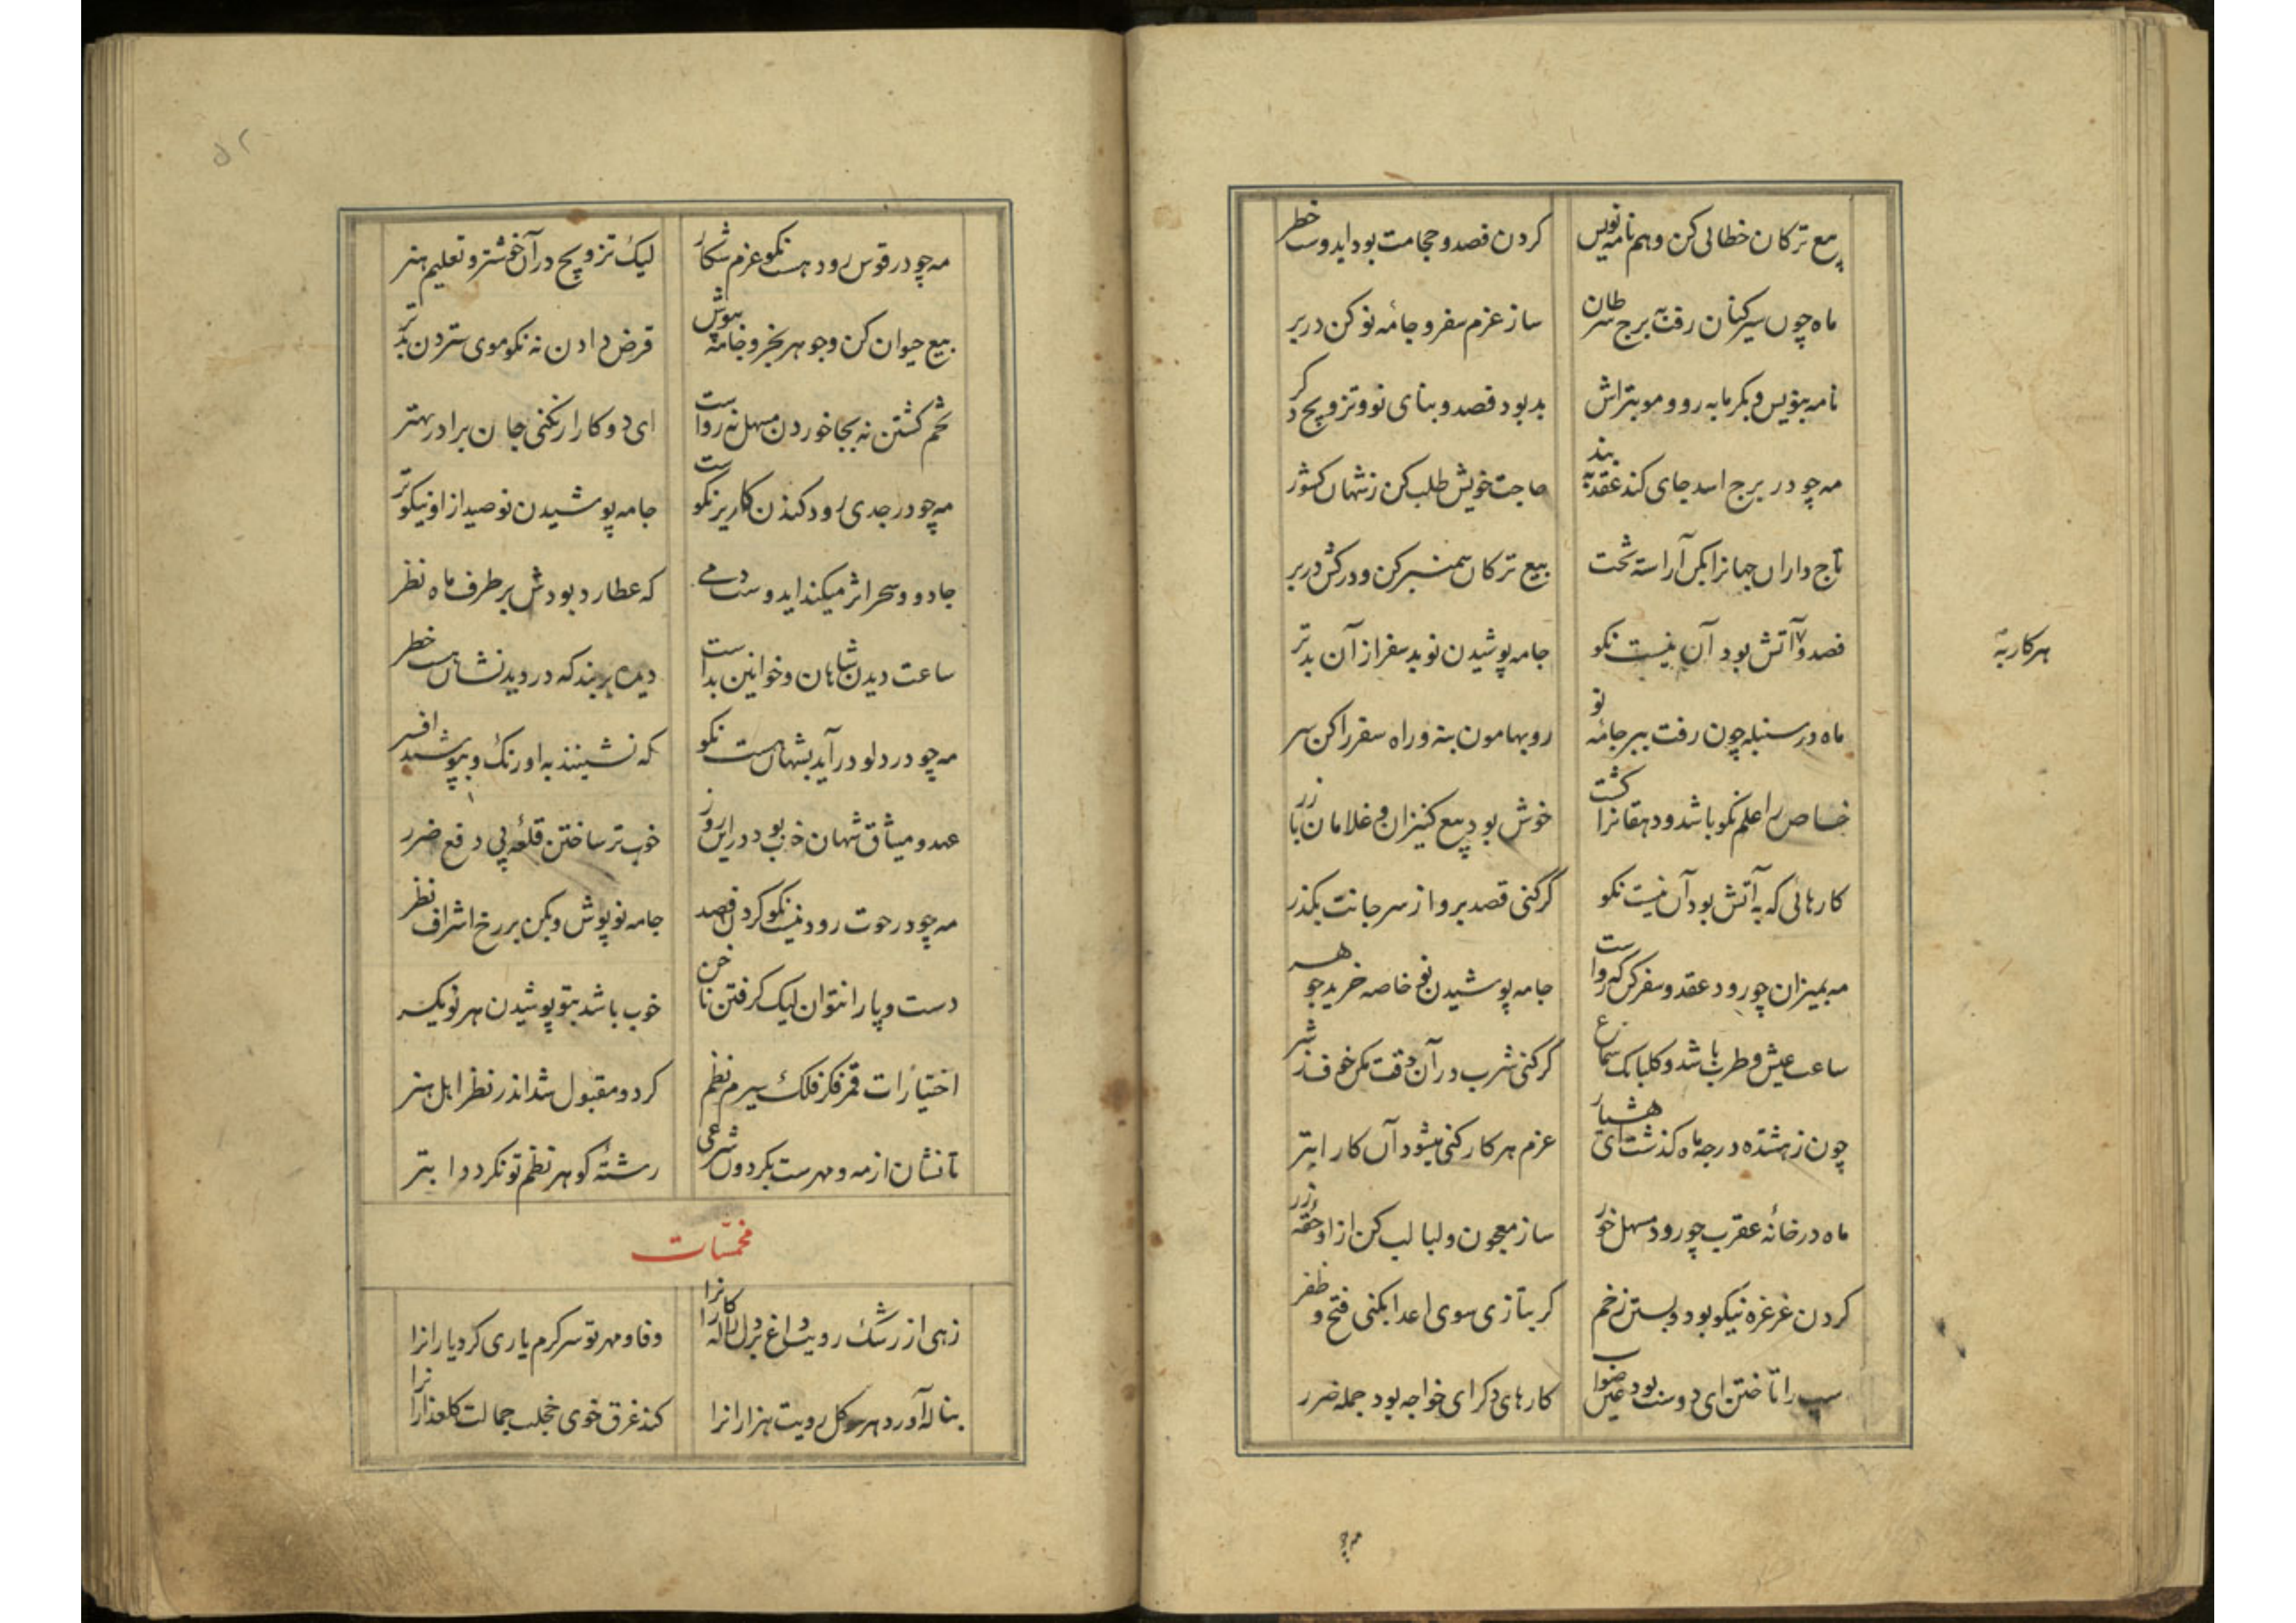 بیع ترکان خطائی کن و هم نامه نویس
کردن فصد و حجامت بود ایدوست خطر
ماه چون سیر کنان رفت به برج سرطان
ساز عزم سفر و جامهٔ نو کن در بر
نامه بنویس و بکرمابه رو و مو بتراش
بد بود فصد و بنای نو و تزویج دکر
مه چو در برج اسد جای کند عقد به بند
حاجت خویش طلب کن ز شهان کشور
تاج داران جهانرا بکن آراسته تخت
بیع ترکان سمنبر کن و درکش در بر
فصد و آتش بود آن نیست نکو
هر کار به
جامه پوشیدن نو بد سفر از آن بدتر
ماه در سنبله چون رفت ببر جامهٔ نو
رو بهامون بنه و راه سفر را کن سر
خاص را علم نکو باشد و دهقانرا کشت
خوش بود بیع کنیزان و غلامان با زر
کارهائی که به آتش بود آن نیست نکو
گر کنی فصد برو از سر جانت بکذر
مه بمیزان چو رود عقد و سفر کن که رواست
جامه پوشیدن نو خاصه خرید جوهر
ساعت عیش و طرب باشد و کلبانک سماع
گر کنی شرب در آن وقت مکن خم
چون ز هشتده درجه ماه کذشت ای هشیار
عزم هر کار کنی میشود آن کار ابتر
ماه در خانهٔ عقرب چو رود مسهل خور
ساز معجون و لبالب کن از او حقهٔ زر
کردن غرغره نیکو بود و بستن زخم
کر بتازی سوی اعدا بکنی فتح و ظفر
را تاختن ای دوست بود عین صواب
کارهای دکر ای خواجه بود جمله ضرر
مه چو
مه چو در قوس رود هست نکو عزم شکار
لیک تزویج در آن خوشتر و تعلیم هنر
بیع حیوان کن و جوهر بخر و جامه بپوش
قرض دادن نه نکو موی ستردن بدتر
تخم کشتن نه بجا خوردن مسهل نه رواست
ای دو کار ار نکنی جان برادر بهتر
مه چو در جدی رود کندن کاریز نکوست
جامه پوشیدن نو صید از او نیکوتر
جادو و سحر اثر میکند ایدوست دمی
که عطارد بودش بر طرف ماه نظر
ساعت دیدن شاهان و خوانین بد است
دیده بربند که در دیدنشان هست خطر
مه چو در دلو درآید بشهان هست نکو
که نشینند به اورنک و بپوشند افسر
عهد و میثاق شهان خوب بود در این روز
خوب تر ساختن قلعه پی دفع ضرر
مه چو در حوت رود نیست نکو کردن فصد
جامه نو پوش و بکن بر رخ اشراف نظر
دست و پا را نتوان لیک کرفتن ناخن
خوب باشد بتو پوشیدن هر نو یکسر
اختیارات قمر فکر فلک سیرم نظم
کرد و مقبول شد اندر نظر اهل هنر
تا نشان از مه و مهرست بکردون شرعی
رشتهٔ کوهر نظم تو نکردد ابتر
مخمّسات
زهی از رشک رویت داغ بر دل لاله کارانرا
وفا و مهر تو سرکرم یاری کرد یارانرا
بناله آورد هر سو کل رویت هزارانرا
کند غرق خوی خجلت جمالت کلعذارانرا